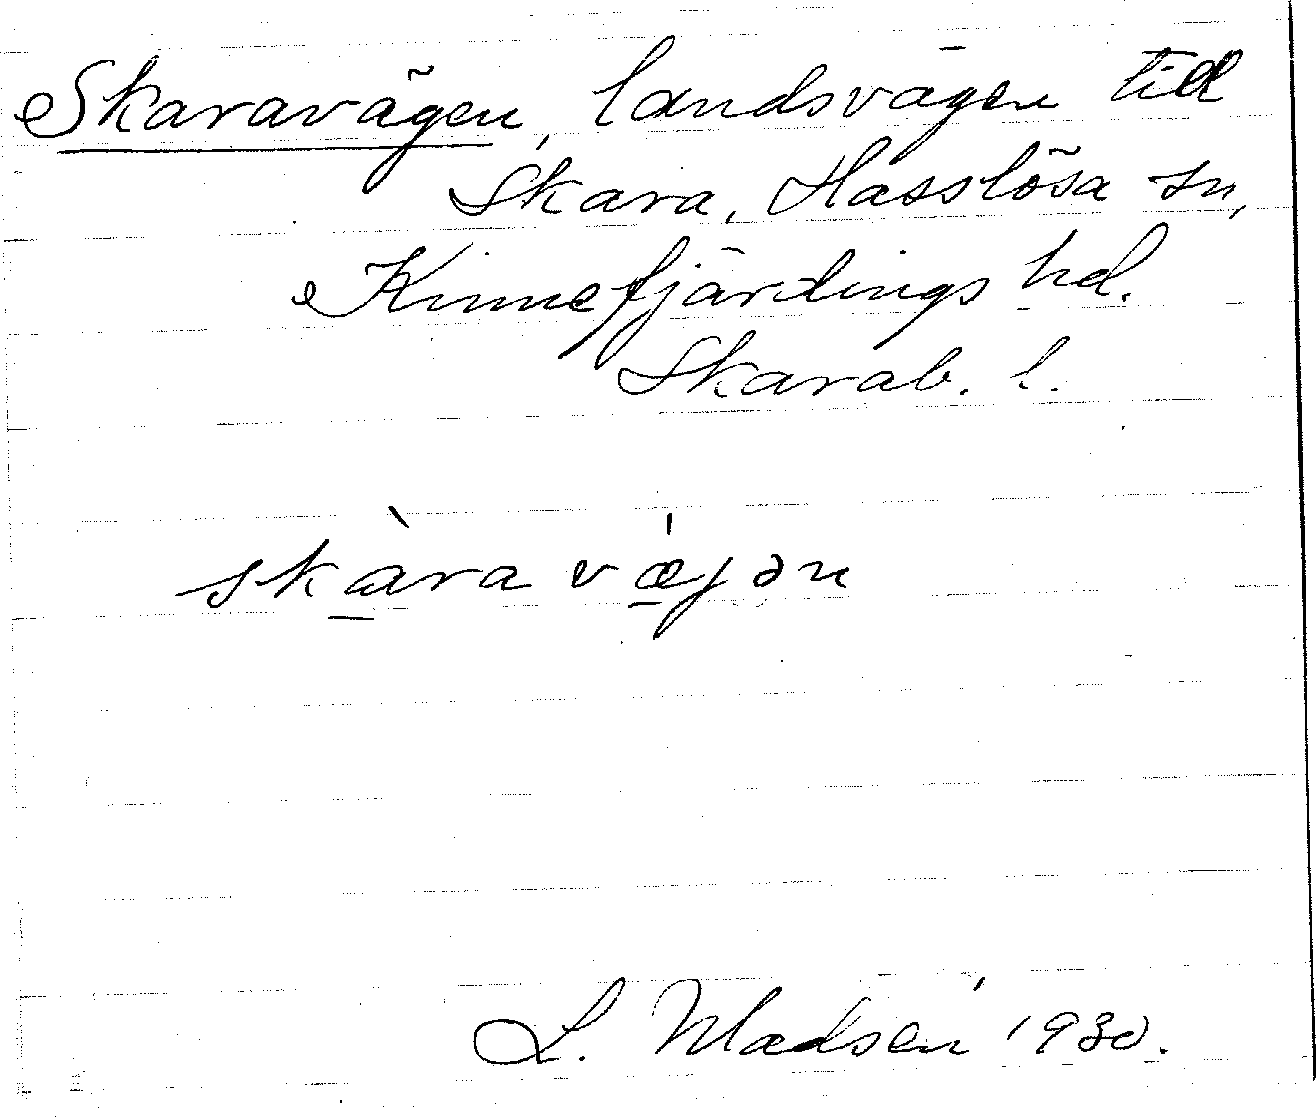 Skaravägen, landsvägen till
Skara, Hasslösa sn,
Kinnefjärdings hd.
Skarab. l.
skàravǽjən
L. Madsén 1930.